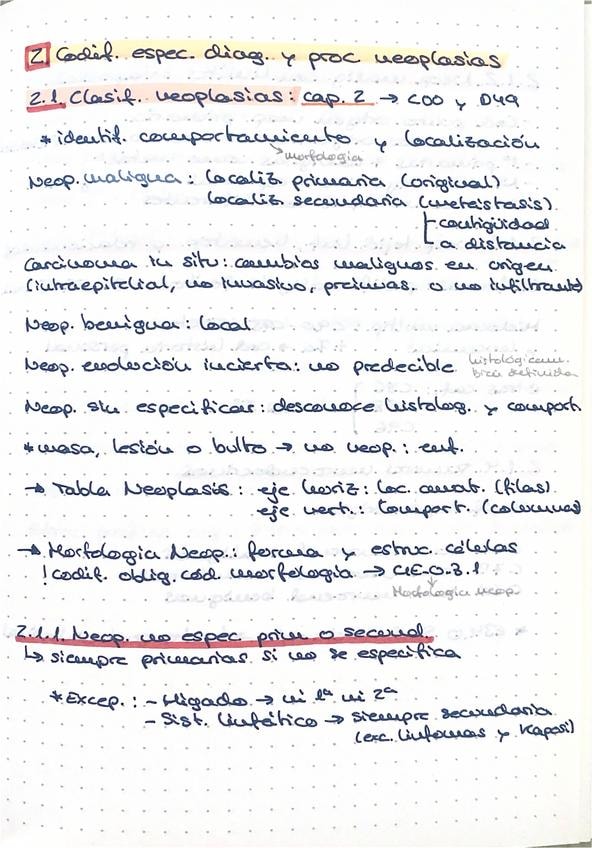 2. Codif. espec. diag. y proc neoplasias
2.1. Clasif. neoplasias: cap. 2 → C00 y D49
* identif. comportamiento y localización
→ morfología
Neop. maligna: localiz primaria (original)
localiz secundaria (metástasis)
contigüidad
a distancia
Carcinoma in situ: cambios malignos en origen
(intraepitelial, no invasivo, preinvas. o no infiltrante)
Neop. benigna: local
Neop. evolución incierta: no predecible histológicam.
bien definida
Neop. sin especificar: desconoce histolog. y comport.
* masa, lesión o bulto → no neop.: enf.
→ Tabla Neoplasis: eje horiz: loc. anat. (filas)
eje vert.: comport. (columnas)
→ Morfología Neop.: forma y estruc. células
! codif. oblig. cód. morfología → CIE-O-3.1
Morfología neop.
2.1.1. Neop. no espec. prim o secund.
↳ siempre primarias si no se especifica
* Excep.: - Hígado → ni 1ª ni 2ª
- Sist. linfático → siempre secundaria
(exc. linfomas y Kaposi)